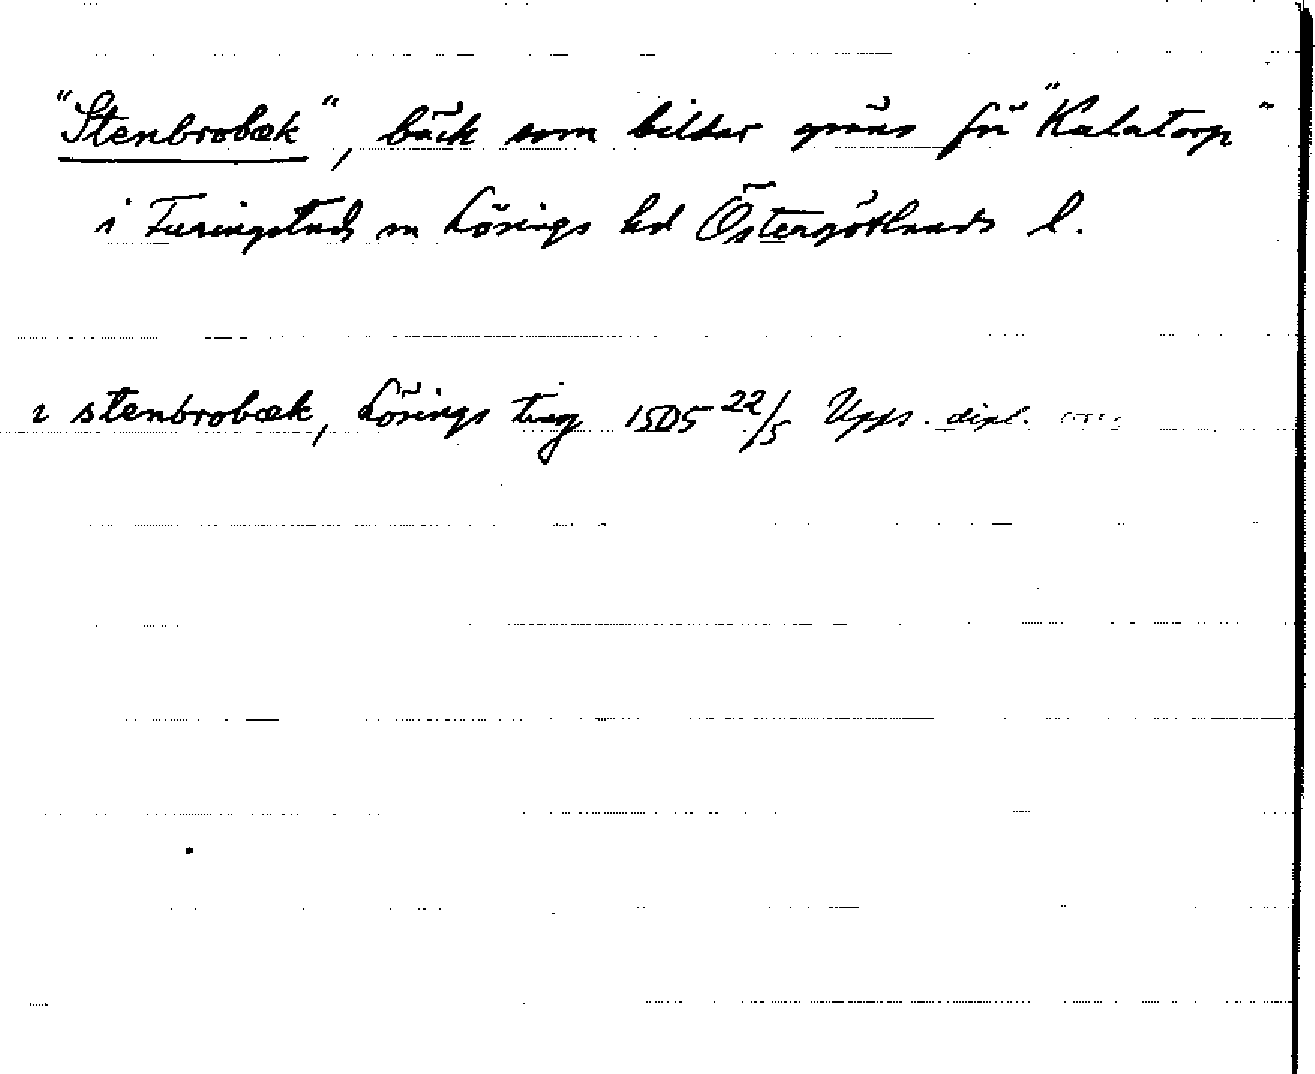 "Stenbrobæk", bäck som bildar gräns för "Kalatorp"
i Furingstads sn Lösings hd Östergötlands l.
i stenbrobæk, Lösings ting 1505 22/5 Upps. dipl.